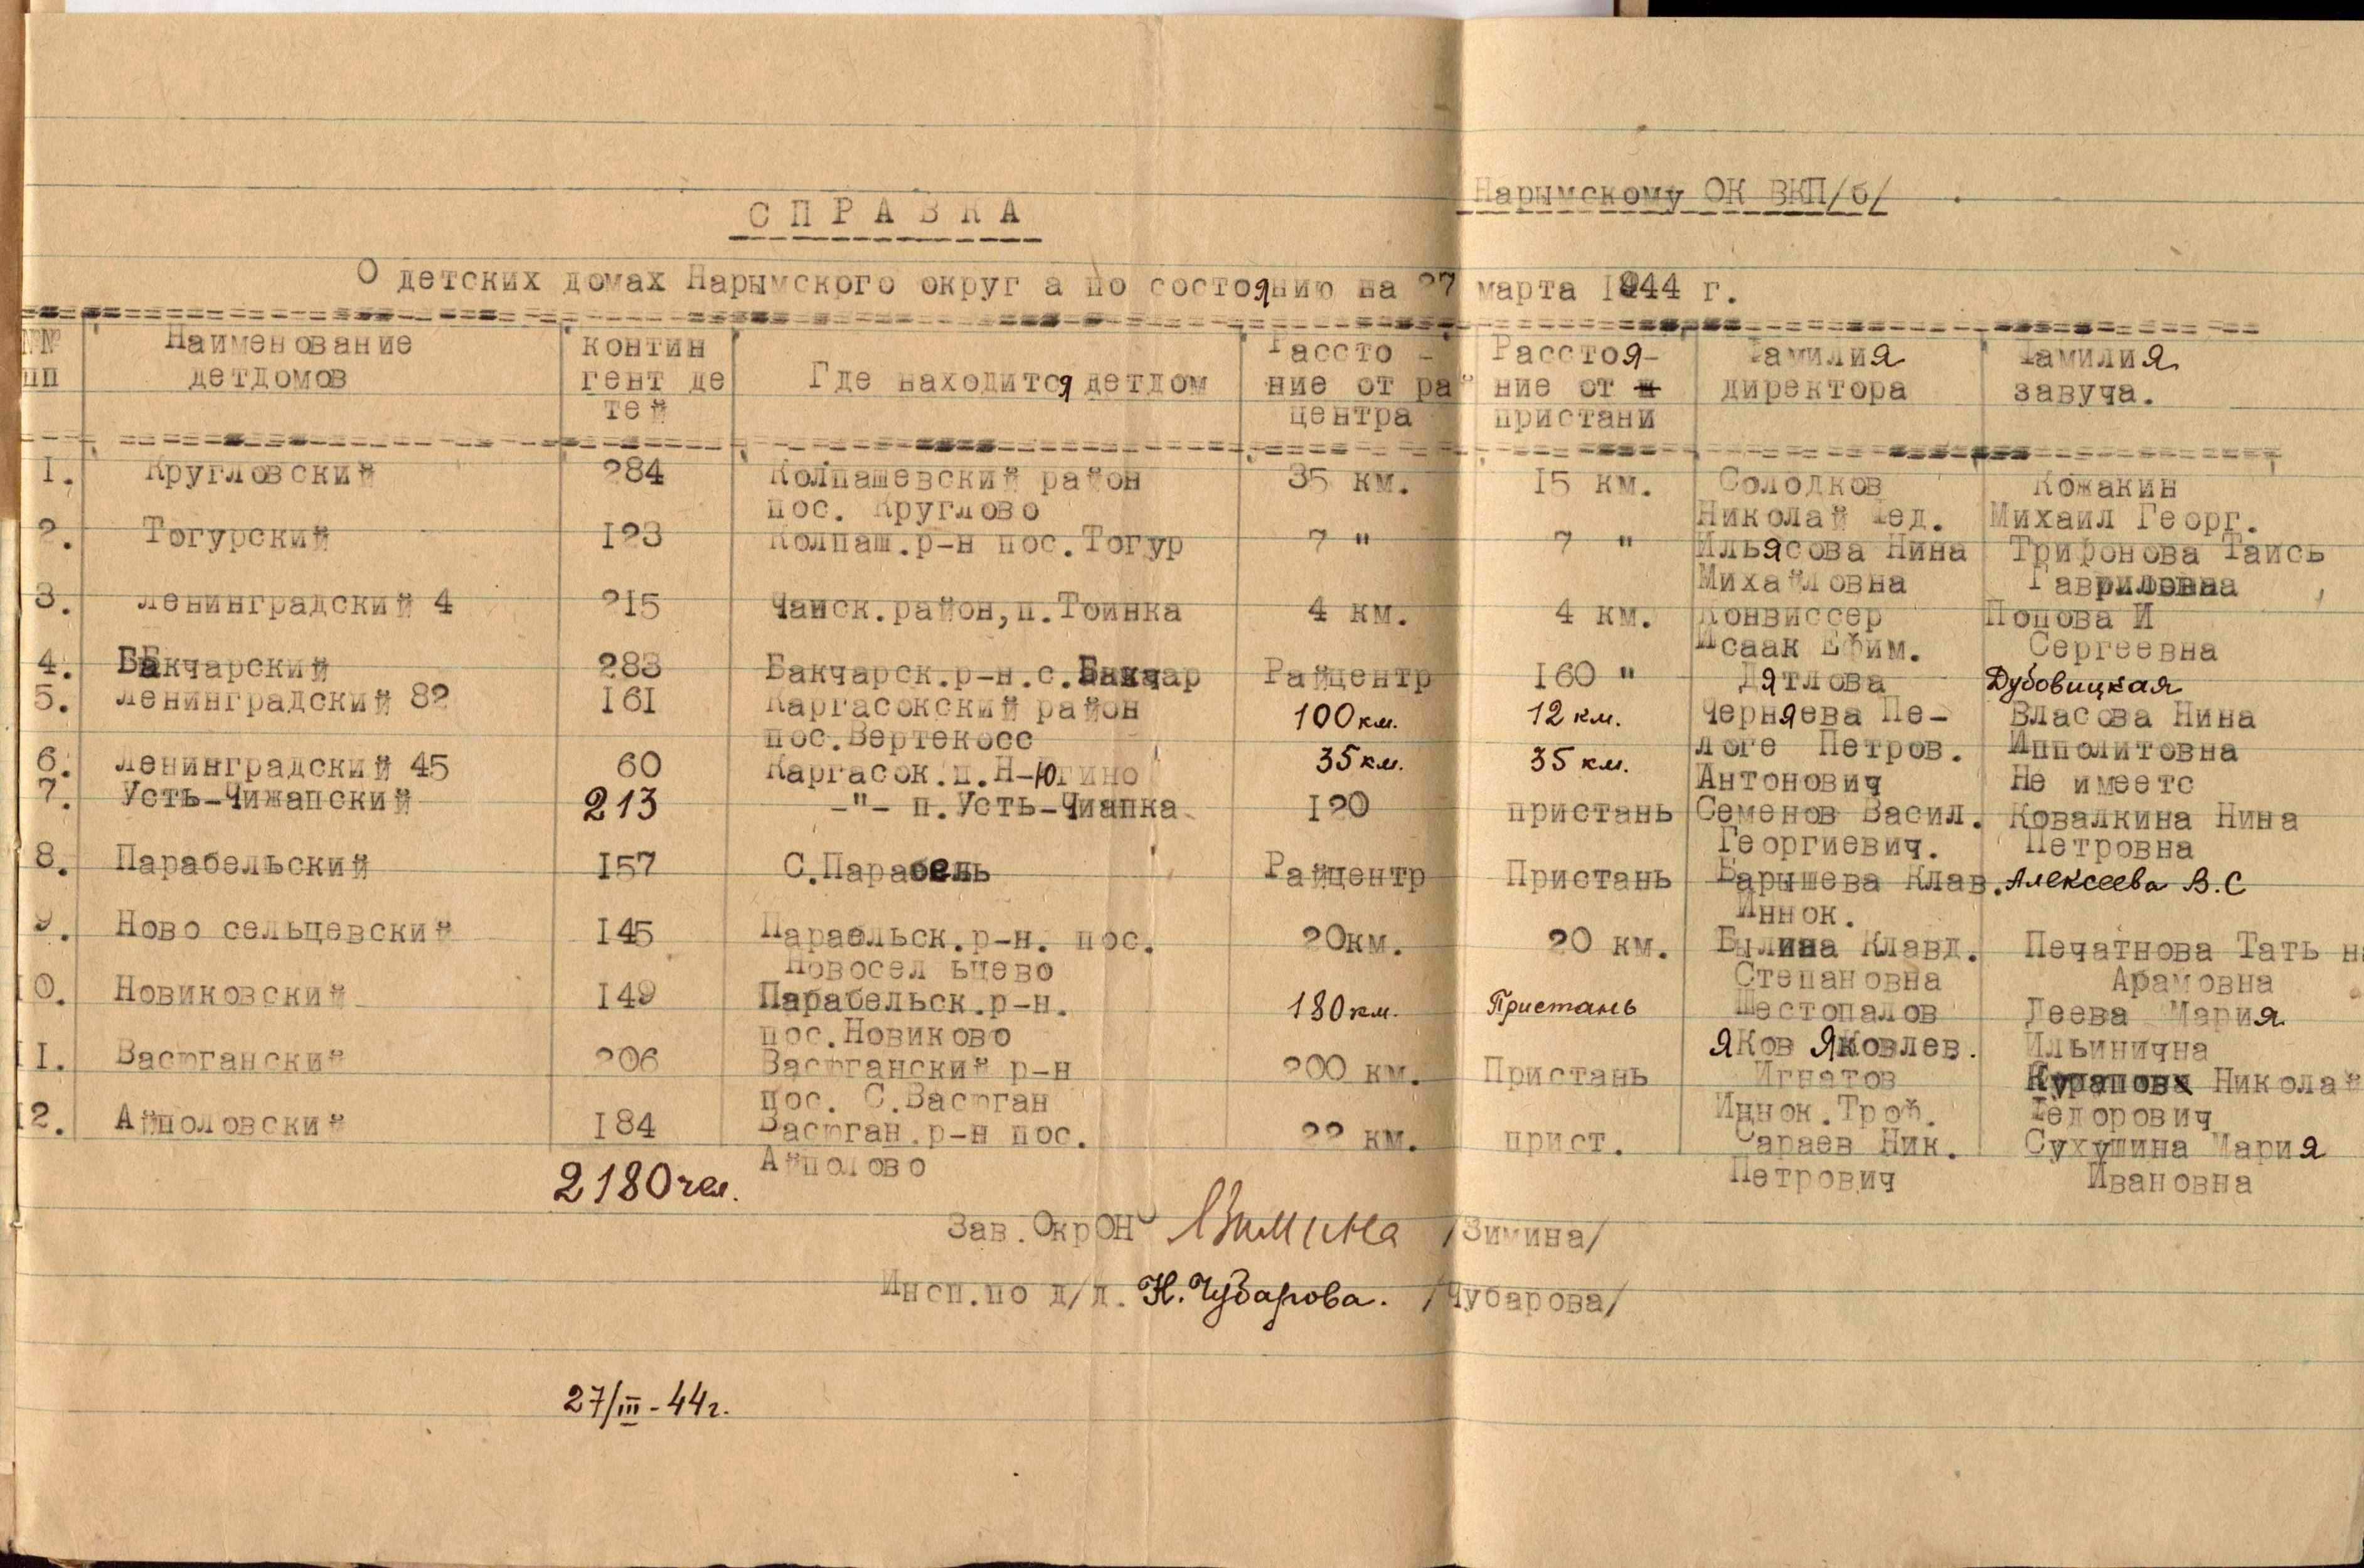 Нарымскому ОК ВКП/б/
СПРАВКА
О детских домах Нарымского округ а по состоянию на 27 марта 1944 г.
№№ Наименование контин Рассто - Расстоя- Фамилия Фамилия
пп детдомов гент де Где находится детдом ние от рай ние от директора завуча.
тей центра пристани
1. Кругловский 284 Колпашевский район 35 км. 15 км. Солодков Кожакин
пос. Круглово Николай Фед. Михаил Георг.
2. Тогурский 123 Колпаш.р-н пос.Тогур 7 " 7 " Ильясова Нина Трифонова Таись
Михайловна Гавриловна
3. Ленинградский 4 215 Чаиск.район,п.Тоинка 4 км. 4 км. Конвиссер Попова И
Исаак Ефим. Сергеевна
4. Бакчарский 283 Бакчарск.р-н.с.Бакчар Райцентр 160 " Дятлова Дубовицкая
5. Ленинградский 82 161 Каргасокский район 100 км. 12 км. Черняева Пе- Власова Нина
пос.Вертекосс логе Петров. Ипполитовна
6. Ленинградский 45 60 Каргасок.п.Н-Югино 35 км. 35 км. Антонович Не имеетс
7. Усть-Чижапский 213 -"- п.Усть-Чиапка 120 пристань Семенов Васил. Ковалкина Нина
Георгиевич. Петровна
8. Парабельский 157 С.Парабель Райцентр Пристань Барышева Клав. Алексеева В.С
Иннок.
9. Ново сельцевский 145 Параельск.р-н. пос. 20км. 20 км. Былина Клавд. Печатнова Тать н
Новосел ьцево Степановна Арамовна
10. Новиковский 149 Парабельск.р-н. 180 км. Пристань Шестопалов Деева Мария
пос.Новиково Яков Яковлев. Ильинична
11. Васюганский 206 Васюганский р-н 200 км. Пристань Игнатов Курапова Николай
пос. С.Васюган Иннок.Троф. Федорович
12. Айполовский 184 Васюган.р-н пос. 22 км. прист. Сараев Ник. Сухушина Мария
Айполово Петрович Ивановна
2180 чел.
Зав.ОкрОНО Зимина /Зимина/
Инсп.по д/д. Н.Чубарова. /Чубарова/
27/III-44г.